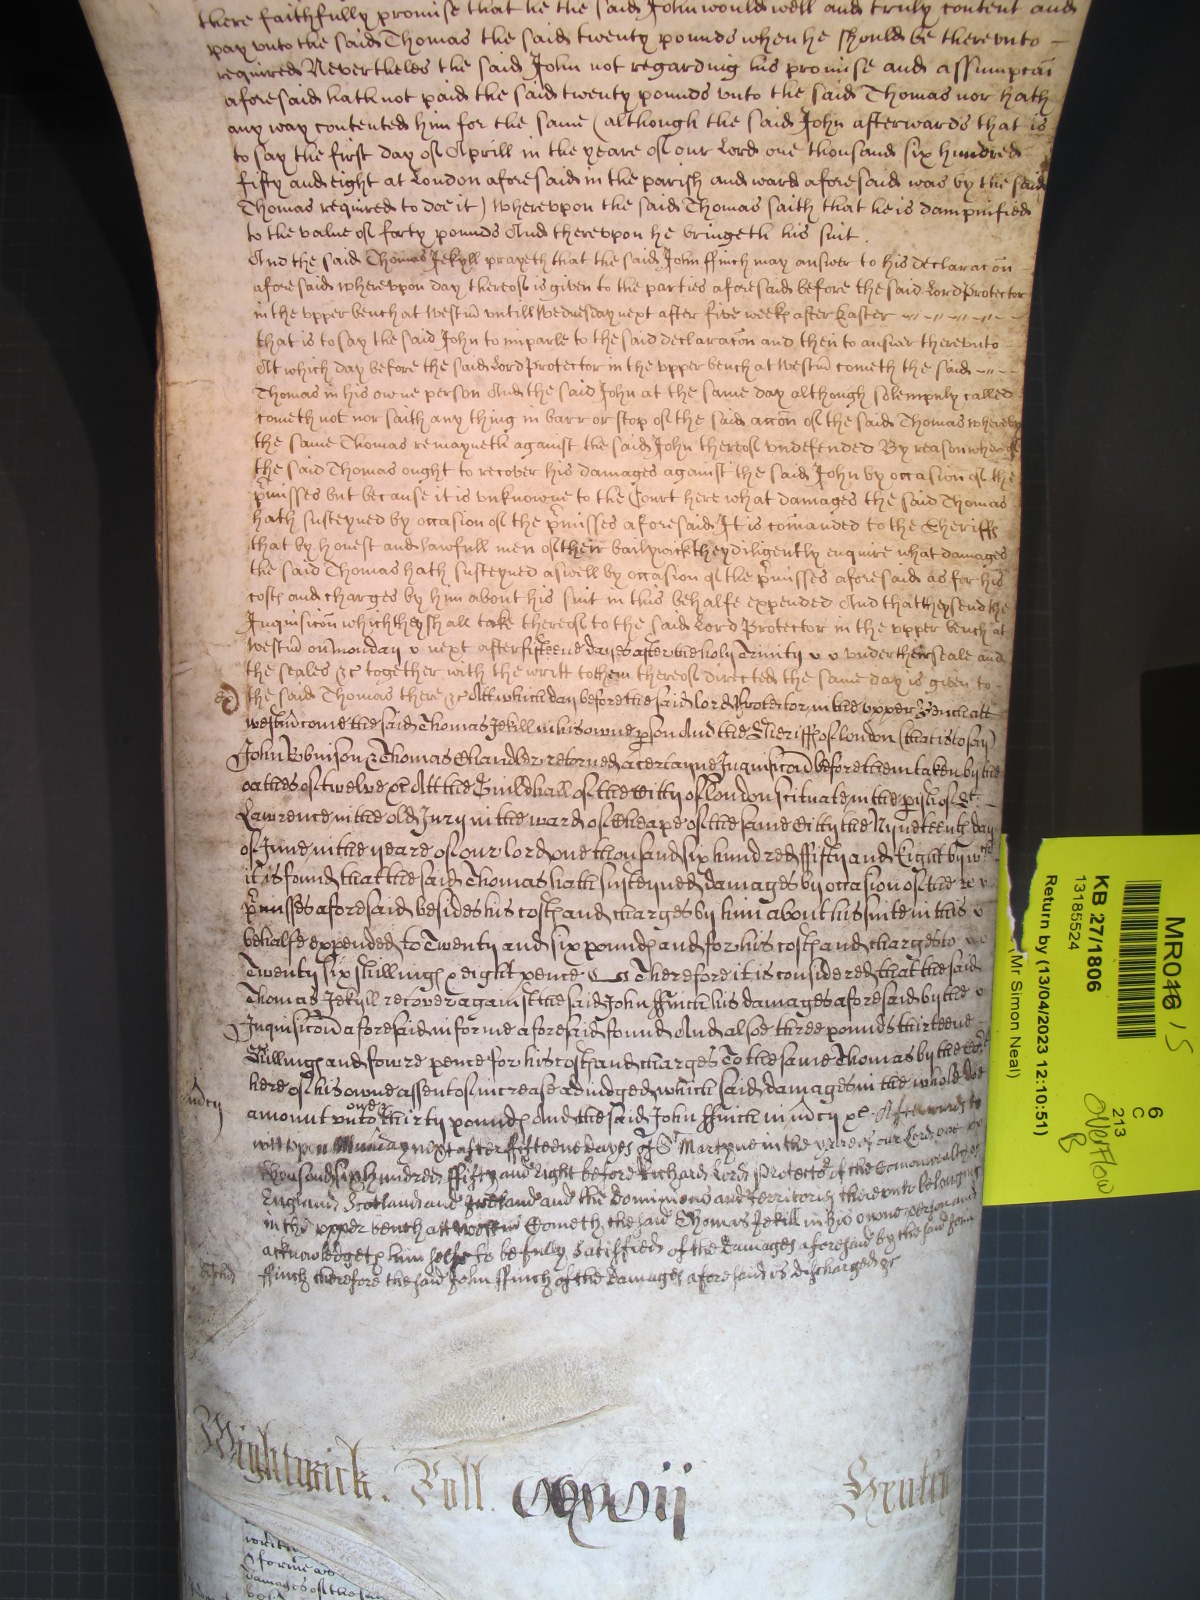 there faithfully promise that he the said John would well and truly content and
pay vnto the said Thomas the said twenty pounds when he should be therevnto
required Neverthelesse the said John not regarding his promise and assumpcōn
aforesaid hath not paid the said twenty pounds vnto the said Thomas nor hath
any way contented him for the same (although the said John afterwards that is
to say the first day of Aprill in the yeare of our Lord one thousand six hundred
fifty and eight at London aforesaid in the parish and ward aforesaid was by the said
Thomas required to doe it) Wherevpon the said Thomas saith that he is dampnified
to the value of forty pounds And therevpon he bringeth his suit.
And the said Thomas Jekyll prayeth that the said John ffinch may answer to his declaracōn
aforesaid wherevpon day thereof is given to the parties aforesaid before the said Lord Protector
in the vpper bench at Westm̄ vntill Wednesday next after five weekes after Easter
that is to say the said John to imparle to the said declaracōn and then to answer therevnto
At which day before the said Lord Protector in the vpper bench at Westm̄ cometh the said
Thomas in his owne person And the said John at the same day although solempnly called
cometh not nor saith any thing in barr or stop of the said accōn of the said Thomas whereby
the same Thomas remayneth against the said John thereof vndefended By reason whereof
the said Thomas ought to recover his damages against the said John by occasion of the
p̄misses but because it is vnknowne to the Court here what damages the said Thomas
hath susteyned by occasion of the p̄misses aforesaid It is com̄anded to the Sheriffs
that by honest and lawfull men of their bailywick they diligently enquire what damages
the said Thomas hath susteyned aswell by occasion of the p̄misses aforesaid as for his
costs and charges by him about his suit in this behalfe expended And that they send the
Inquisicōn which they shall take thereof to the said Lord Protector in the vpper bench at
Westm̄ on monday next after fifteene dayes after the holy Trinity vnder their seale and
the seales &c together with the writt to them thereof directed the same day is given to
the said Thomas there &c Att which day before the said Lord Protector in the vpper Bench att
Westm̄ come the said Thomas Jekill in his owne p̱son And the Sheriffs of London (that is to say)
John Robinson & Thomas Chandler retorned a certayne Inquisicōn before them taken by the
oathes of twelve &c Att the Guildhall of the Citty of London scituate in the p̱ish of St
Lawrence in the old Jury in the ward of Cheape of the same Citty the Nyneteenth day
of June in the yeare of our lord one thousand six hundred ffifty and Eight by wch
it is found that the said Thomas hath susteyned damages by occasion of the
p̄misses aforesaid besides his costs and charges by him about his suite in this
behalfe expended to Twenty and six pounds and for his costs and charges to
Twenty six shillings & eight pence Therefore it is considered that the said
Thomas Jekyll recover against the said John ffinch his damages aforesaid by the
Inquisicōn aforesaid in forme aforesaid found And alsoe three pounds thirteene
Shillings and fowre pence for his costs and charges To the same Thomas by the Court
here of his owne assent of increase adiudged which said damages in the whole doe
amount vnto thirty one pounds And the said John ffinch in m̄cy &c Afterwards to
witt vpon Munday next after ffifteene dayes of St Martyne in the yeare of our Lord one
thousand six hundred ffifty and eight before Richard Lord Protector of the Comonwealth of
England Scotland and Ireland and the Dominions and Territories therevnto belonging
in the vpper bench att Westm̄ Cometh the said Thomas Jekill in his owne person and
acknowledgeth him selfe to be fully Satisffied of the Damages aforesaid by the said John
ffinch therefore the said John ffinch of the Damages aforesaid is discharged &c
m̄cy
Wightwick. Roll.
MR046 / 5
6
C
213
Overflow
B
KB 27/1806
13185524
Return by (13/04/2023 12:10:51)
(Mr Simon Neal)